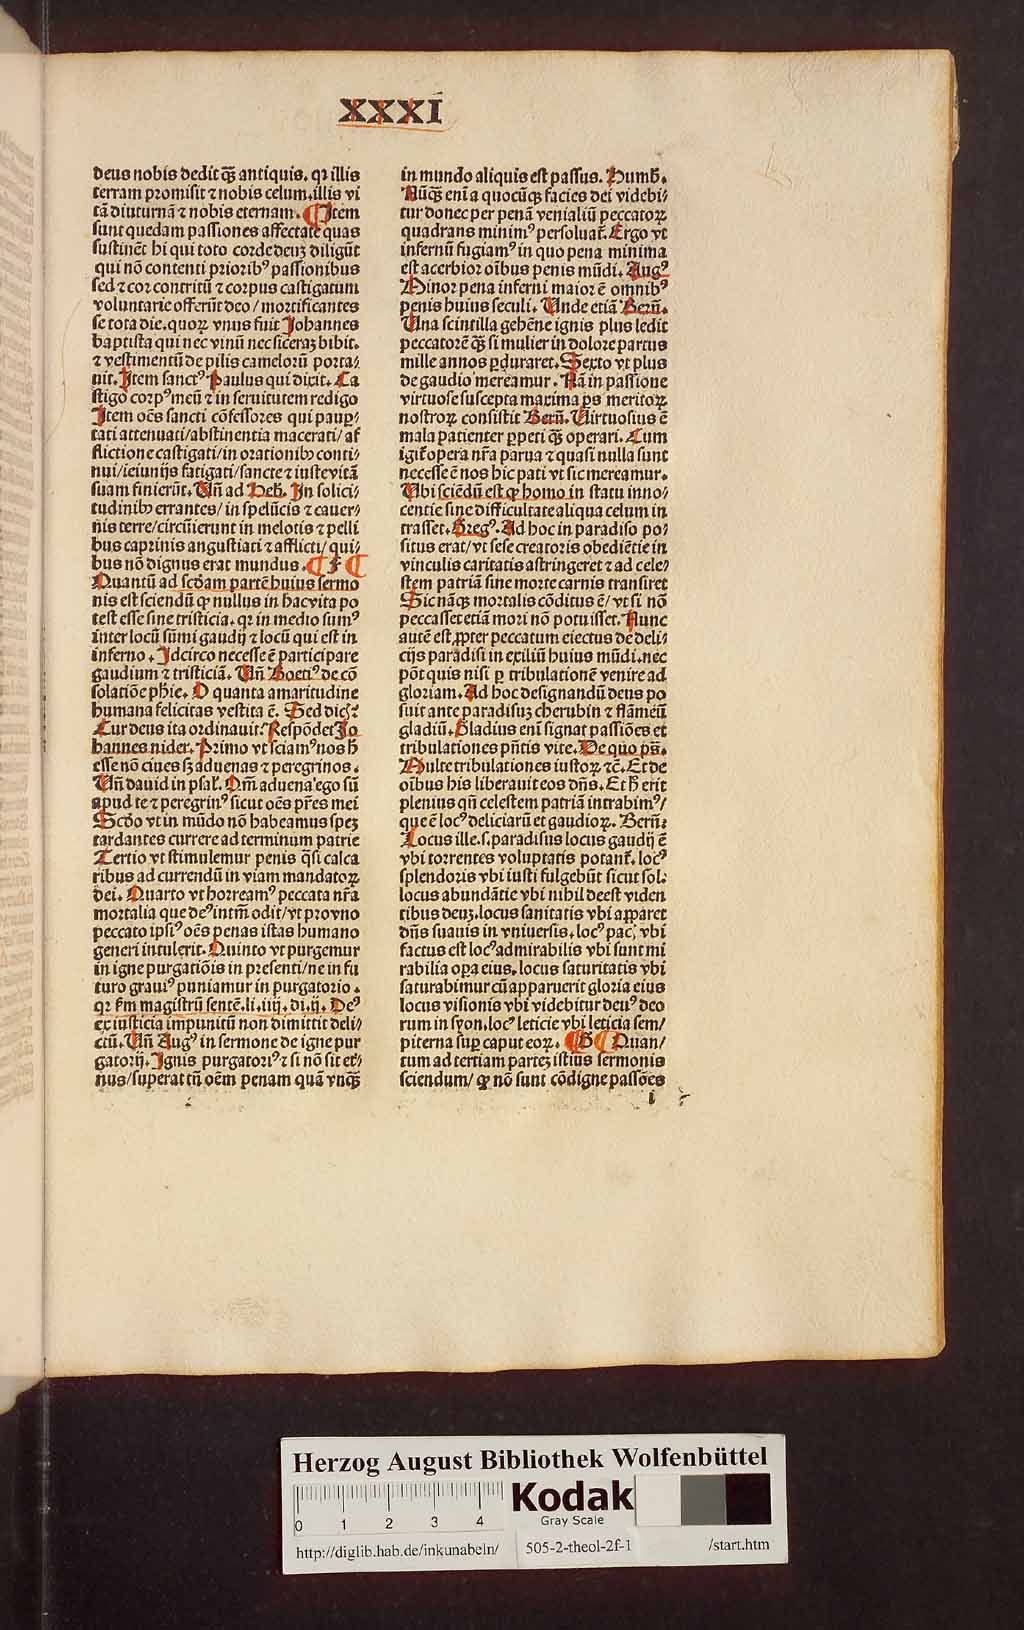 XXXI
deus nobis dedit qȝ̃ antiquis. qꝛ illis
terram promisit ⁊ nobis celum. illis vi
tã diuturnã ⁊ nobis eternam. ¶ Item
sunt quedam passiones affectate quas
sustinẽt hi qui toto corde deuȝ diligũt
qui nõ contenti prioribꝰ passionibus
sed ⁊ cor contritũ ⁊ corpus castigatum
voluntarie offerũt deo/ mortificantes
se tota die. quoꝝ vnus fuit Johannes
baptista qui nec vinũ nec siceraȝ bibit.
⁊ vestimentũ de pilis camelorũ porta/
uit. Item sanctꝰ Paulus qui dixit. Ca
stigo corpꝰ meũ ⁊ in seruitutem redigo
Item oẽs sancti cõfessores qui pauꝑ/
tati attenuati/ abstinentia macerati/ af
flictione castigati/ in orationibꝰ conti/
nui/ ieiunijs fatigati/ sancte ⁊ iuste vitã
suam finierũt. Vñ ad Heb̃. In solici/
tudinibꝰ errantes/ in spelũcis ⁊ cauer/
nis terre/ circũierunt in melotis ⁊ pelli
bus caprinis angustiati ⁊ afflicti/ qui/
bus nõ dignus erat mundus. ¶ F ¶
Quantũ ad scðam partẽ huius sermo
nis est sciendũ ꝙ nullus in hac vita po
test esse sine tristicia. qꝛ in medio sumꝰ
inter locũ sũmi gaudij ⁊ locũ qui est in
inferno. Idcirco necesse ẽ participare
gaudium ⁊ tristiciã. Vñ Boetiꝰ de cõ
solatiõe phie. O quanta amaritudine
humana felicitas vestita ẽ. Sed dicȝ?
Cur deus ita ordinauit? Respõdet Jo
hannes nider. Primo vt sciamꝰ nos h̃
esse nõ ciues sȝ aduenas ⁊ peregrinos.
Vñ dauid in psal̃. Qm̃ aduena ego sũ
apud te ⁊ peregrinꝰ sicut oẽs pr̃es mei
Scðo vt in mũdo nõ habeamus speȝ
tardantes currere ad terminum patrie
Tertio vt stimulemur penis q̃si calca
ribus ad currendũ in viam mandatoꝝ
dei. Quarto vt horreamꝰ peccata nr̃a
mortalia que deꝰ intm̃ odit/ vt pro vno
peccato ipsiꝰ oẽs penas istas humano
generi intulerit. Quinto vt purgemur
in igne purgatiõis in presenti/ ne in fu
turo grauiꝰ puniamur in purgatorio.
qꝛ ẜm magistrũ sentẽ. li. iiij. di. ij. Deꝰ
ex iusticia impunitũ non dimittit deli/
ctũ. Vñ Augꝰ in sermone de igne pur
gatorij. Ignis purgatoriꝰ ⁊ si nõ sit et̾/
nus/ superat tñ oẽm penam quã vnqȝ̃
in mundo aliquis est passus. Humb̃.
Nũqȝ̃ eni̅ a quocũqȝ facies dei videbi/
tur donec per penã venialiũ peccatoꝝ
quadrans minimꝰ persoluat̃. Ergo vt
infernũ fugiamꝰ in quo pena minima
est acerbior oĩbus penis mũdi. Augꝰ
Minor pena inferni maior ẽ omnibꝰ
penis huius seculi. Vnde etiã Berñ.
Vna scintilla gehẽne ignis plus ledit
peccatorẽ qȝ̃ si mulier in dolore partus
mille annos ꝑduraret. Sexto vt plus
de gaudio mereamur. Nã in passione
virtuose suscepta maxima ꝑs meritoꝝ
nostroꝝ consistit Berñ. Virtuosius ẽ
mala patienter ꝑpeti qȝ̃ operari. Cum
igit̃ opera nr̃a parua ⁊ quasi nulla sunt
necesse ẽ nos hic pati vt sic mereamur.
Vbi sciẽdũ est ꝙ homo in statu inno/
centie sine difficultate aliqua celum in
trasset. Gregꝰ. Ad hoc in paradiso po/
situs erat/ vt sese creatoris obediẽtie in
vinculis caritatis astringeret ⁊ ad cele/
stem patriã sine morte carnis transiret
Sic nãqȝ mortalis cõditus ẽ/ vt si nõ
peccasset etiã mori nõ potuisset. Nunc
autẽ est ꝓpter peccatum eiectus de deli/
cijs paradisi in exiliũ huius mũdi. nec
põt quis nisi ꝑ tribulationẽ venire ad
gloriam. Ad hoc designandũ deus po
suit ante paradisuȝ cherubin ⁊ flãmeũ
gladiũ. Gladius eni̅ signat passiões et
tribulationes pñtis vite. De quo ps̃.
Multe tribulationes iustoꝝ ⁊c̃. Et de
oĩbus his liberauit eos dñs. Et h̃ erit
plenius qñ celestem patriã intrabimꝰ/
que ẽ locꝰ deliciarũ et gaudioꝝ. Berñ:
Locus ille. s. paradisus locus gaudij ẽ
vbi torrentes voluptatis potant̃. locꝰ
splendoris vbi iusti fulgebũt sicut sol:
locus abundãtie vbi nihil deest viden
tibus deuȝ. locus sanitatis vbi apparet
dñs suauis in vniuersis. locꝰ pac̾, vbi
factus est locꝰ admirabilis vbi sunt mi
rabilia oꝑa eius. locus saturitatis vbi
saturabimur cũ apparuerit gloria eius
locus visionis vbi videbitur deuꝰ deo
rum in syon. locꝰ leticie vbi leticia sem/
piterna suꝑ caput eoꝝ. ¶ G ¶ Quan/
tum ad tertiam parteȝ istius sermonis
sciendum/ ꝙ nõ sunt cõdigne passões
i
Herzog August Bibliothek Wolfenbüttel
0 1 2 3 4
Kodak
Gray Scale
http://diglib.hab.de/inkunabeln/ 505-2-theol-2f-1 /start.htm